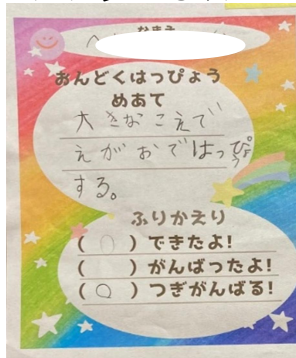 なまえ
おんどくはっぴょう
めあて
大きなこえで
えがおではっぴょう
する。
ふりかえり
( ) できたよ!
( ) がんばったよ!
(○) つぎがんばる!